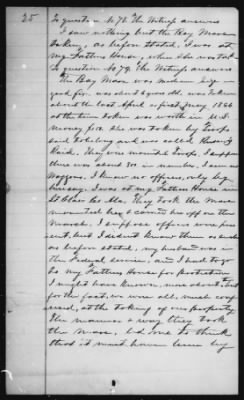 25
To question No 78 The Witness answers
I saw nothing but the Bay Mare
taken, as before stated, I was at
my Fathers House, when she was taken
To question No 79 The Witness answers
the Bay Mare was medium size in
good fix was about 6 years old, was taken
about the last April or first May 1864
at the time taken was worth in U.S.
money $150. She was taken by Troops
said to belong and was called
Raid. They were mounted Troops, I suppose
there was about 300 in number, I saw no
Waggons, I know no officers, only by
hearsay. I was at my Fathers House in
St Clair Co Ala. They took the Mare
mounted her & carried her off on the
march. I suppose officers were pres
ent, but I did not know them as such
as before stated, my husband was in
the Federal service and I had to go
to my Fathers House for protection
I might have known more about it but
for the fact, we were all much conf
used, at the taking of our property
The manner & way they took
the Mare, led me to think
that it must have been by